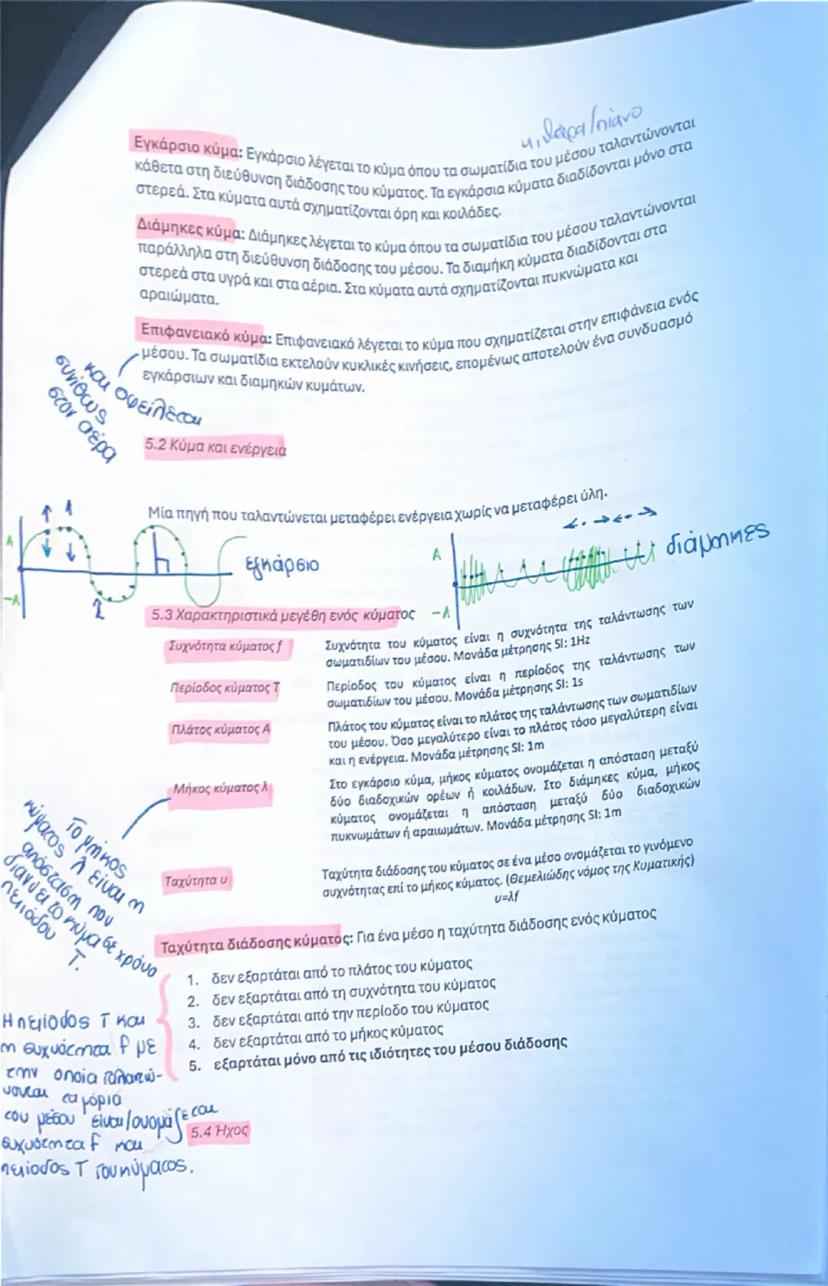 κιθάρα/πιάνο
Εγκάρσιο κύμα: Εγκάρσιο λέγεται το κύμα όπου τα σωματίδια του μέσου ταλαντώνονται
κάθετα στη διεύθυνση διάδοσης του κύματος. Τα εγκάρσια κύματα διαδίδονται μόνο στα
στερεά. Στα κύματα αυτά σχηματίζονται όρη και κοιλάδες.
Διάμηκες κύμα: Διάμηκες λέγεται το κύμα όπου τα σωματίδια του μέσου ταλαντώνονται
παράλληλα στη διεύθυνση διάδοσης του μέσου. Τα διαμήκη κύματα διαδίδονται στα
στερεά στα υγρά και στα αέρια. Στα κύματα αυτά σχηματίζονται πυκνώματα και
αραιώματα.
Επιφανειακό κύμα: Επιφανειακό λέγεται το κύμα που σχηματίζεται στην επιφάνεια ενός
μέσου. Τα σωματίδια εκτελούν κυκλικές κινήσεις, επομένως αποτελούν ένα συνδυασμό
εγκάρσιων και διαμηκών κυμάτων.
και οφείλεται
συνήθως
στον αέρα
5.2 Κύμα και ενέργεια
Μία πηγή που ταλαντώνεται μεταφέρει ενέργεια χωρίς να μεταφέρει ύλη.
A
-A
εγκάρσιο
A
-A
διάμηκες
5.3 Χαρακτηριστικά μεγέθη ενός κύματος
Συχνότητα κύματος f
Συχνότητα του κύματος είναι η συχνότητα της ταλάντωσης των
σωματιδίων του μέσου. Μονάδα μέτρησης SI: 1Hz
Περίοδος κύματος T
Περίοδος του κύματος είναι η περίοδος της ταλάντωσης των
σωματιδίων του μέσου. Μονάδα μέτρησης SI: 1s
Πλάτος κύματος A
Πλάτος του κύματος είναι το πλάτος της ταλάντωσης των σωματιδίων
του μέσου. Όσο μεγαλύτερο είναι το πλάτος τόσο μεγαλύτερη είναι
και η ενέργεια. Μονάδα μέτρησης SI: 1m
Μήκος κύματος λ
Στο εγκάρσιο κύμα, μήκος κύματος ονομάζεται η απόσταση μεταξύ
δύο διαδοχικών ορέων ή κοιλάδων. Στο διάμηκες κύμα, μήκος
κύματος ονομάζεται η απόσταση μεταξύ δύο διαδοχικών
πυκνωμάτων ή αραιωμάτων. Μονάδα μέτρησης SI: 1m
Το μήκος
κύματος λ είναι η
απόσταση που
διανύει το κύμα σε χρόνο
περιόδου
T.
Ταχύτητα υ
Ταχύτητα διάδοσης του κύματος σε ένα μέσο ονομάζεται το γινόμενο
συχνότητας επί το μήκος κύματος. (Θεμελιώδης νόμος της Κυματικής)
υ=λf
Ταχύτητα διάδοσης κύματος: Για ένα μέσο η ταχύτητα διάδοσης ενός κύματος
1. δεν εξαρτάται από το πλάτος του κύματος
2. δεν εξαρτάται από τη συχνότητα του κύματος
3. δεν εξαρτάται από την περίοδο του κύματος
4. δεν εξαρτάται από το μήκος κύματος
5. εξαρτάται μόνο από τις ιδιότητες του μέσου διάδοσης
Η περίοδος T και
η συχνότητα f με
την οποία ταλαντώ-
νονται τα μόρια
του μέσου είναι/ονομάζεται
συχνότητα f και
περίοδος T του κύματος.
5.4 Ήχος